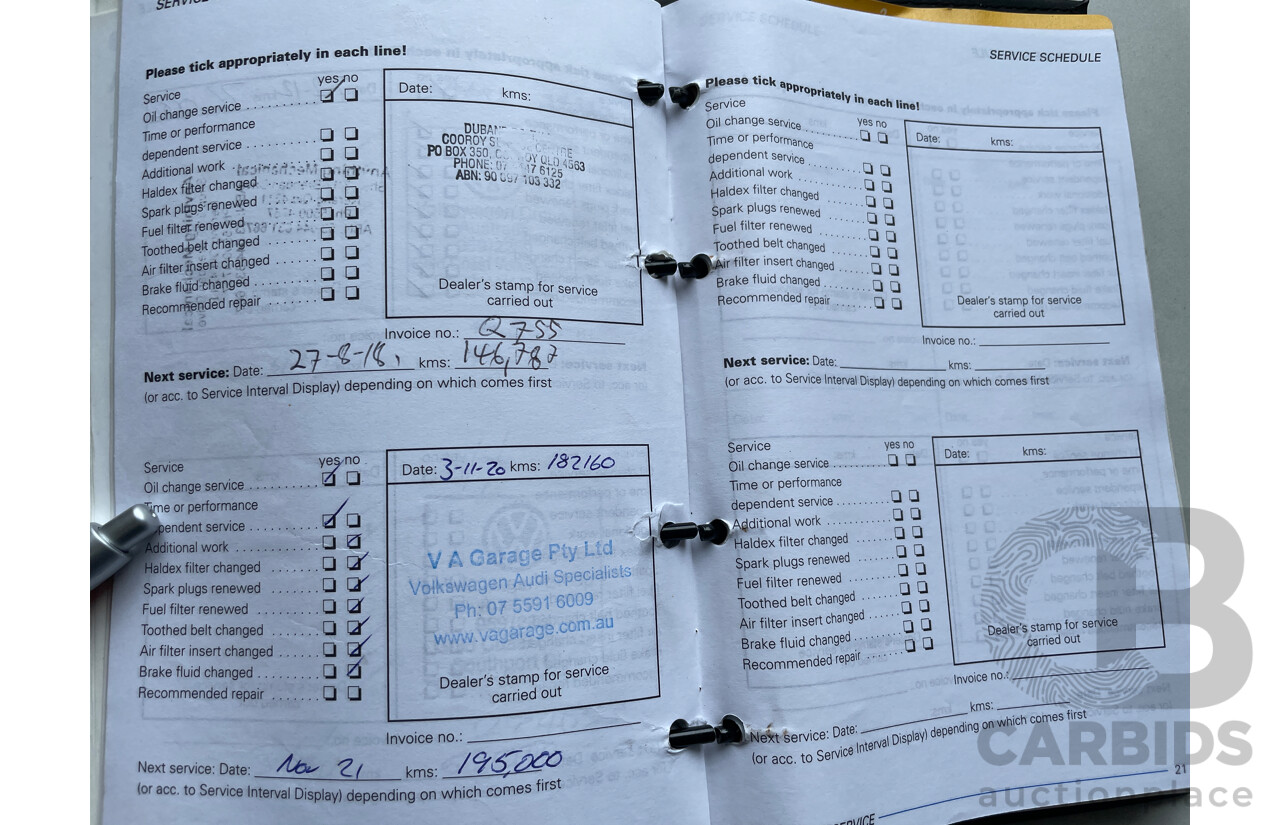 SERVICE SCHEDULE
Please tick appropriately in each line!
yes no
Service
Oil change service
Time or performance
dependent service
Additional work
Haldex filter changed
Spark plugs renewed
Fuel filter renewed
Toothed belt changed
Air filter insert changed
Brake fluid changed
Recommended repair
Date: kms:
COOROY
PO BOX 350, QLD 4563
PHONE: 07 6125
ABN: 90 103 332
Dealer's stamp for service
carried out
Invoice no.: Q 755
Next service: Date: 27-8-18, kms: 146,787
(or acc. to Service Interval Display) depending on which comes first
Service
yes no
Oil change service
Time or performance
dependent service
Additional work
Haldex filter changed
Spark plugs renewed
Fuel filter renewed
Toothed belt changed
Air filter insert changed
Brake fluid changed
Recommended repair
Date: 3-11-20 kms: 182160
V A Garage Pty Ltd
Volkswagen Audi Specialists
Ph: 07 5591 6009
www.vagarage.com.au
Dealer's stamp for service
carried out
Invoice no.:
Next service: Date: Nov 21 kms: 195,000
(or acc. to Service Interval Display) depending on which comes first
Please tick appropriately in each line!
Service
yes no
Oil change service
Time or performance
dependent service
Additional work
Haldex filter changed
Spark plugs renewed
Fuel filter renewed
Toothed belt changed
Air filter insert changed
Brake fluid changed
Recommended repair
Date: kms:
Dealer's stamp for service
carried out
Invoice no.:
Next service: Date: kms:
(or acc. to Service Interval Display) depending on which comes first
Service
yes no
Oil change service
Time or performance
dependent service
Additional work
Haldex filter changed
Spark plugs renewed
Fuel filter renewed
Toothed belt changed
Air filter insert changed
Brake fluid changed
Recommended repair
Date: kms:
Dealer's stamp for service
carried out
Invoice no.:
Next service: Date: kms:
(or acc. to Service Interval Display) depending on which comes first
21
SERVICE
CARBIDS
auctionplace